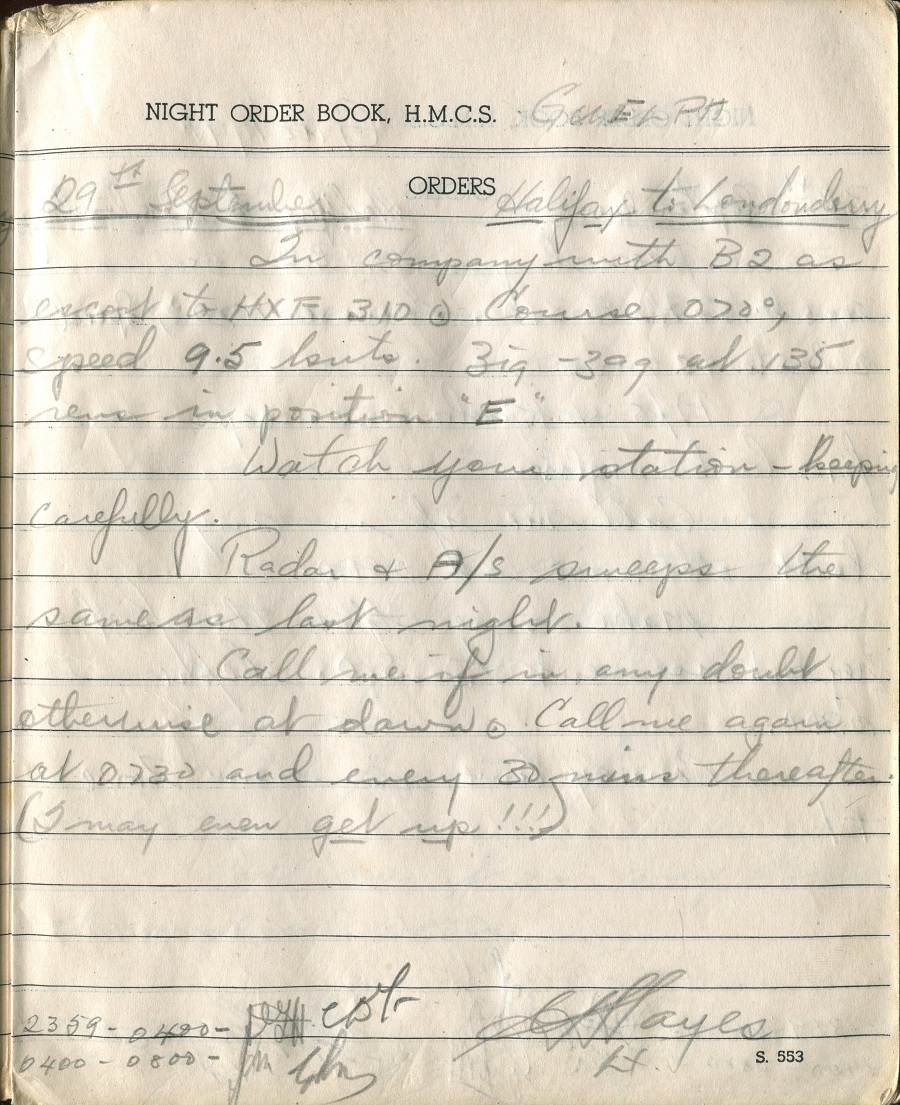 NIGHT ORDER BOOK, H.M.C.S. GUELPH
ORDERS
29th September Halifax to Londonderry
In company with B2 as
escort to HXF 310. Course 070°,
speed 9.5 knots. Zig-zag at 135
revs in position "E"
Watch your station-keeping
carefully.
Radar & A/S sweeps the
same as last night.
Call me if in any doubt
otherwise at dawn. Call me again
at 0730 and every 30 mins thereafter.
(I may even get up !!!)
2359 - 0400 -
0400 - 0800 - JM
Hayes
Lt.
S. 553